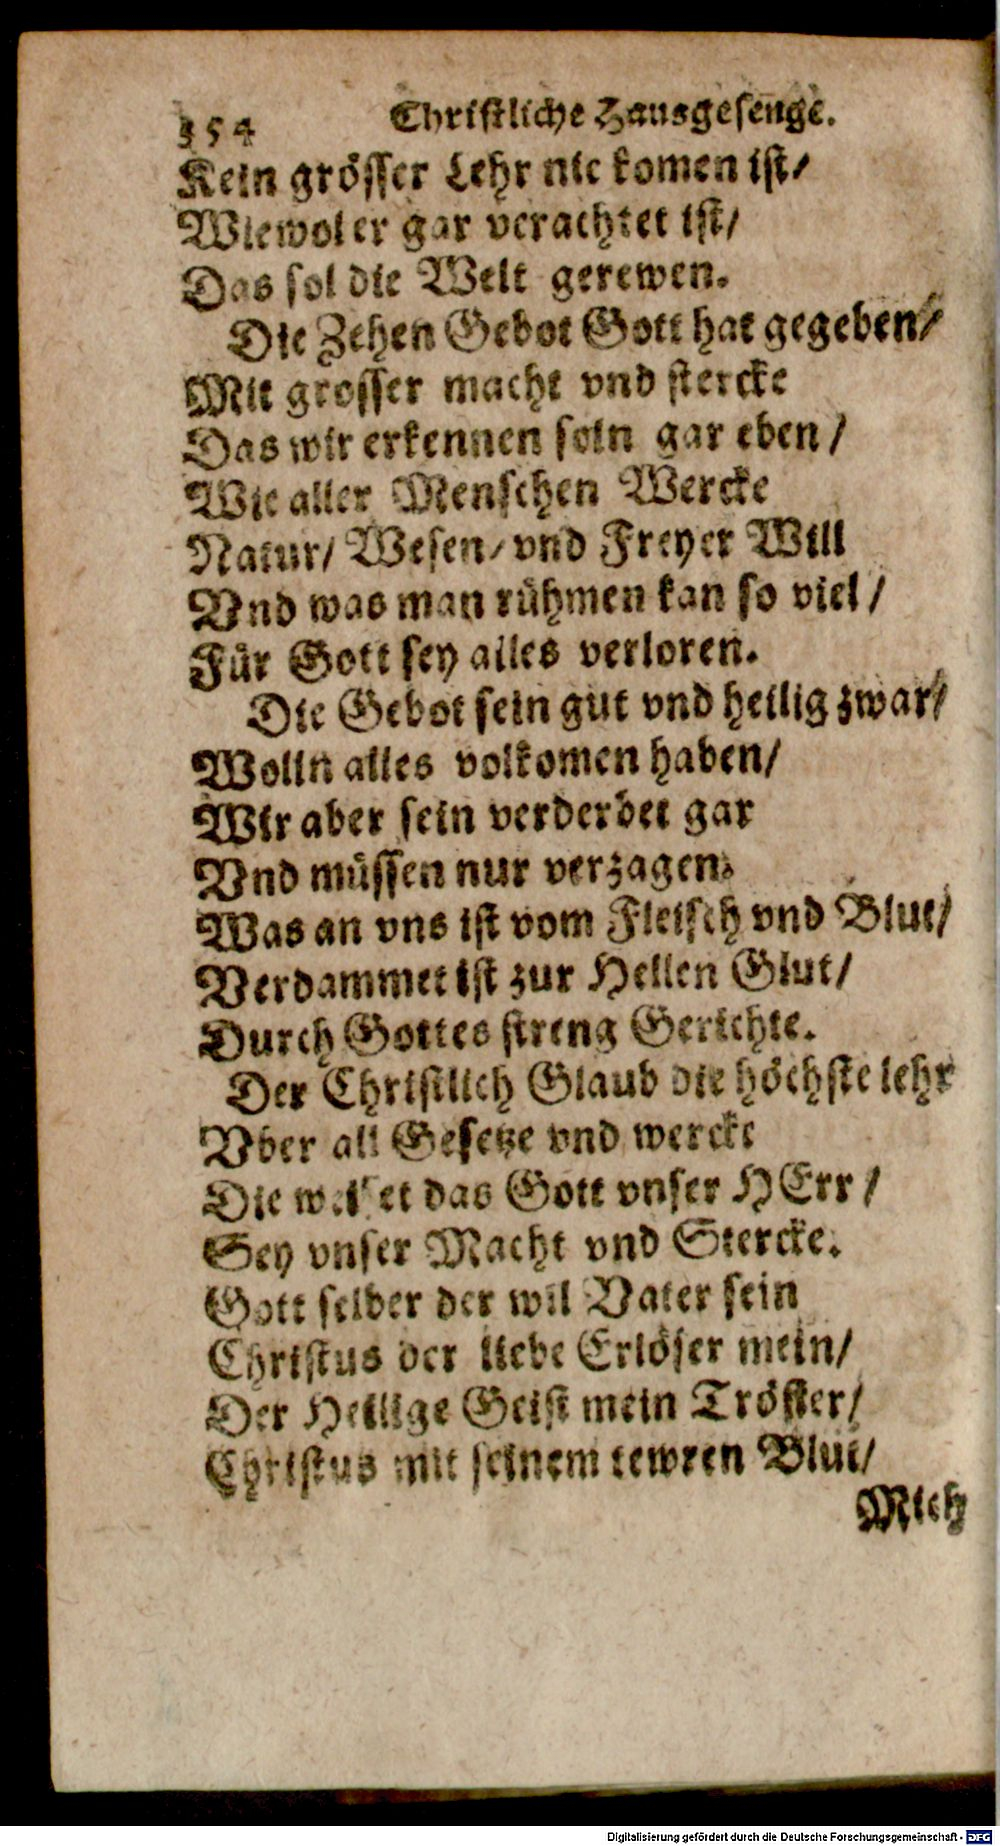 354 Christliche Hausgesenge.
Kein grösser Lehr nie komen ist/
Wiewol er gar verachtet ist/
Das sol die Welt gerewen.
Die Zehen Gebot Gott hat gegeben/
Mit grosser macht vnd stercke
Das wir erkennen soln gar eben/
Wie aller Menschen Wercke
Natur/ Wesen/ vnd Freyer Will
Vnd was man rühmen kan so viel/
Für Gott sey alles verloren.
Die Gebot sein gut vnd heilig zwar/
Wolln alles volkomen haben/
Wir aber sein verderbet gar
Vnd müssen nur verzagen.
Was an vns ist vom Fleisch vnd Blut/
Verdammet ist zur Hellen Glut/
Durch Gottes streng Gerichte.
Der Christlich Glaub die höchste lehr
Vber all Gesetze vnd wercke
Die weiset das Gott vnser HErr/
Sey vnser Macht vnd Stercke.
Gott selber der wil Vater sein
Christus der liebe Erlöser mein/
Der Heilige Geist mein Tröster/
Christus mit seinem tewren Blut/
Mich
Digitalisierung gefördert durch die Deutsche Forschungsgemeinschaft - DFG